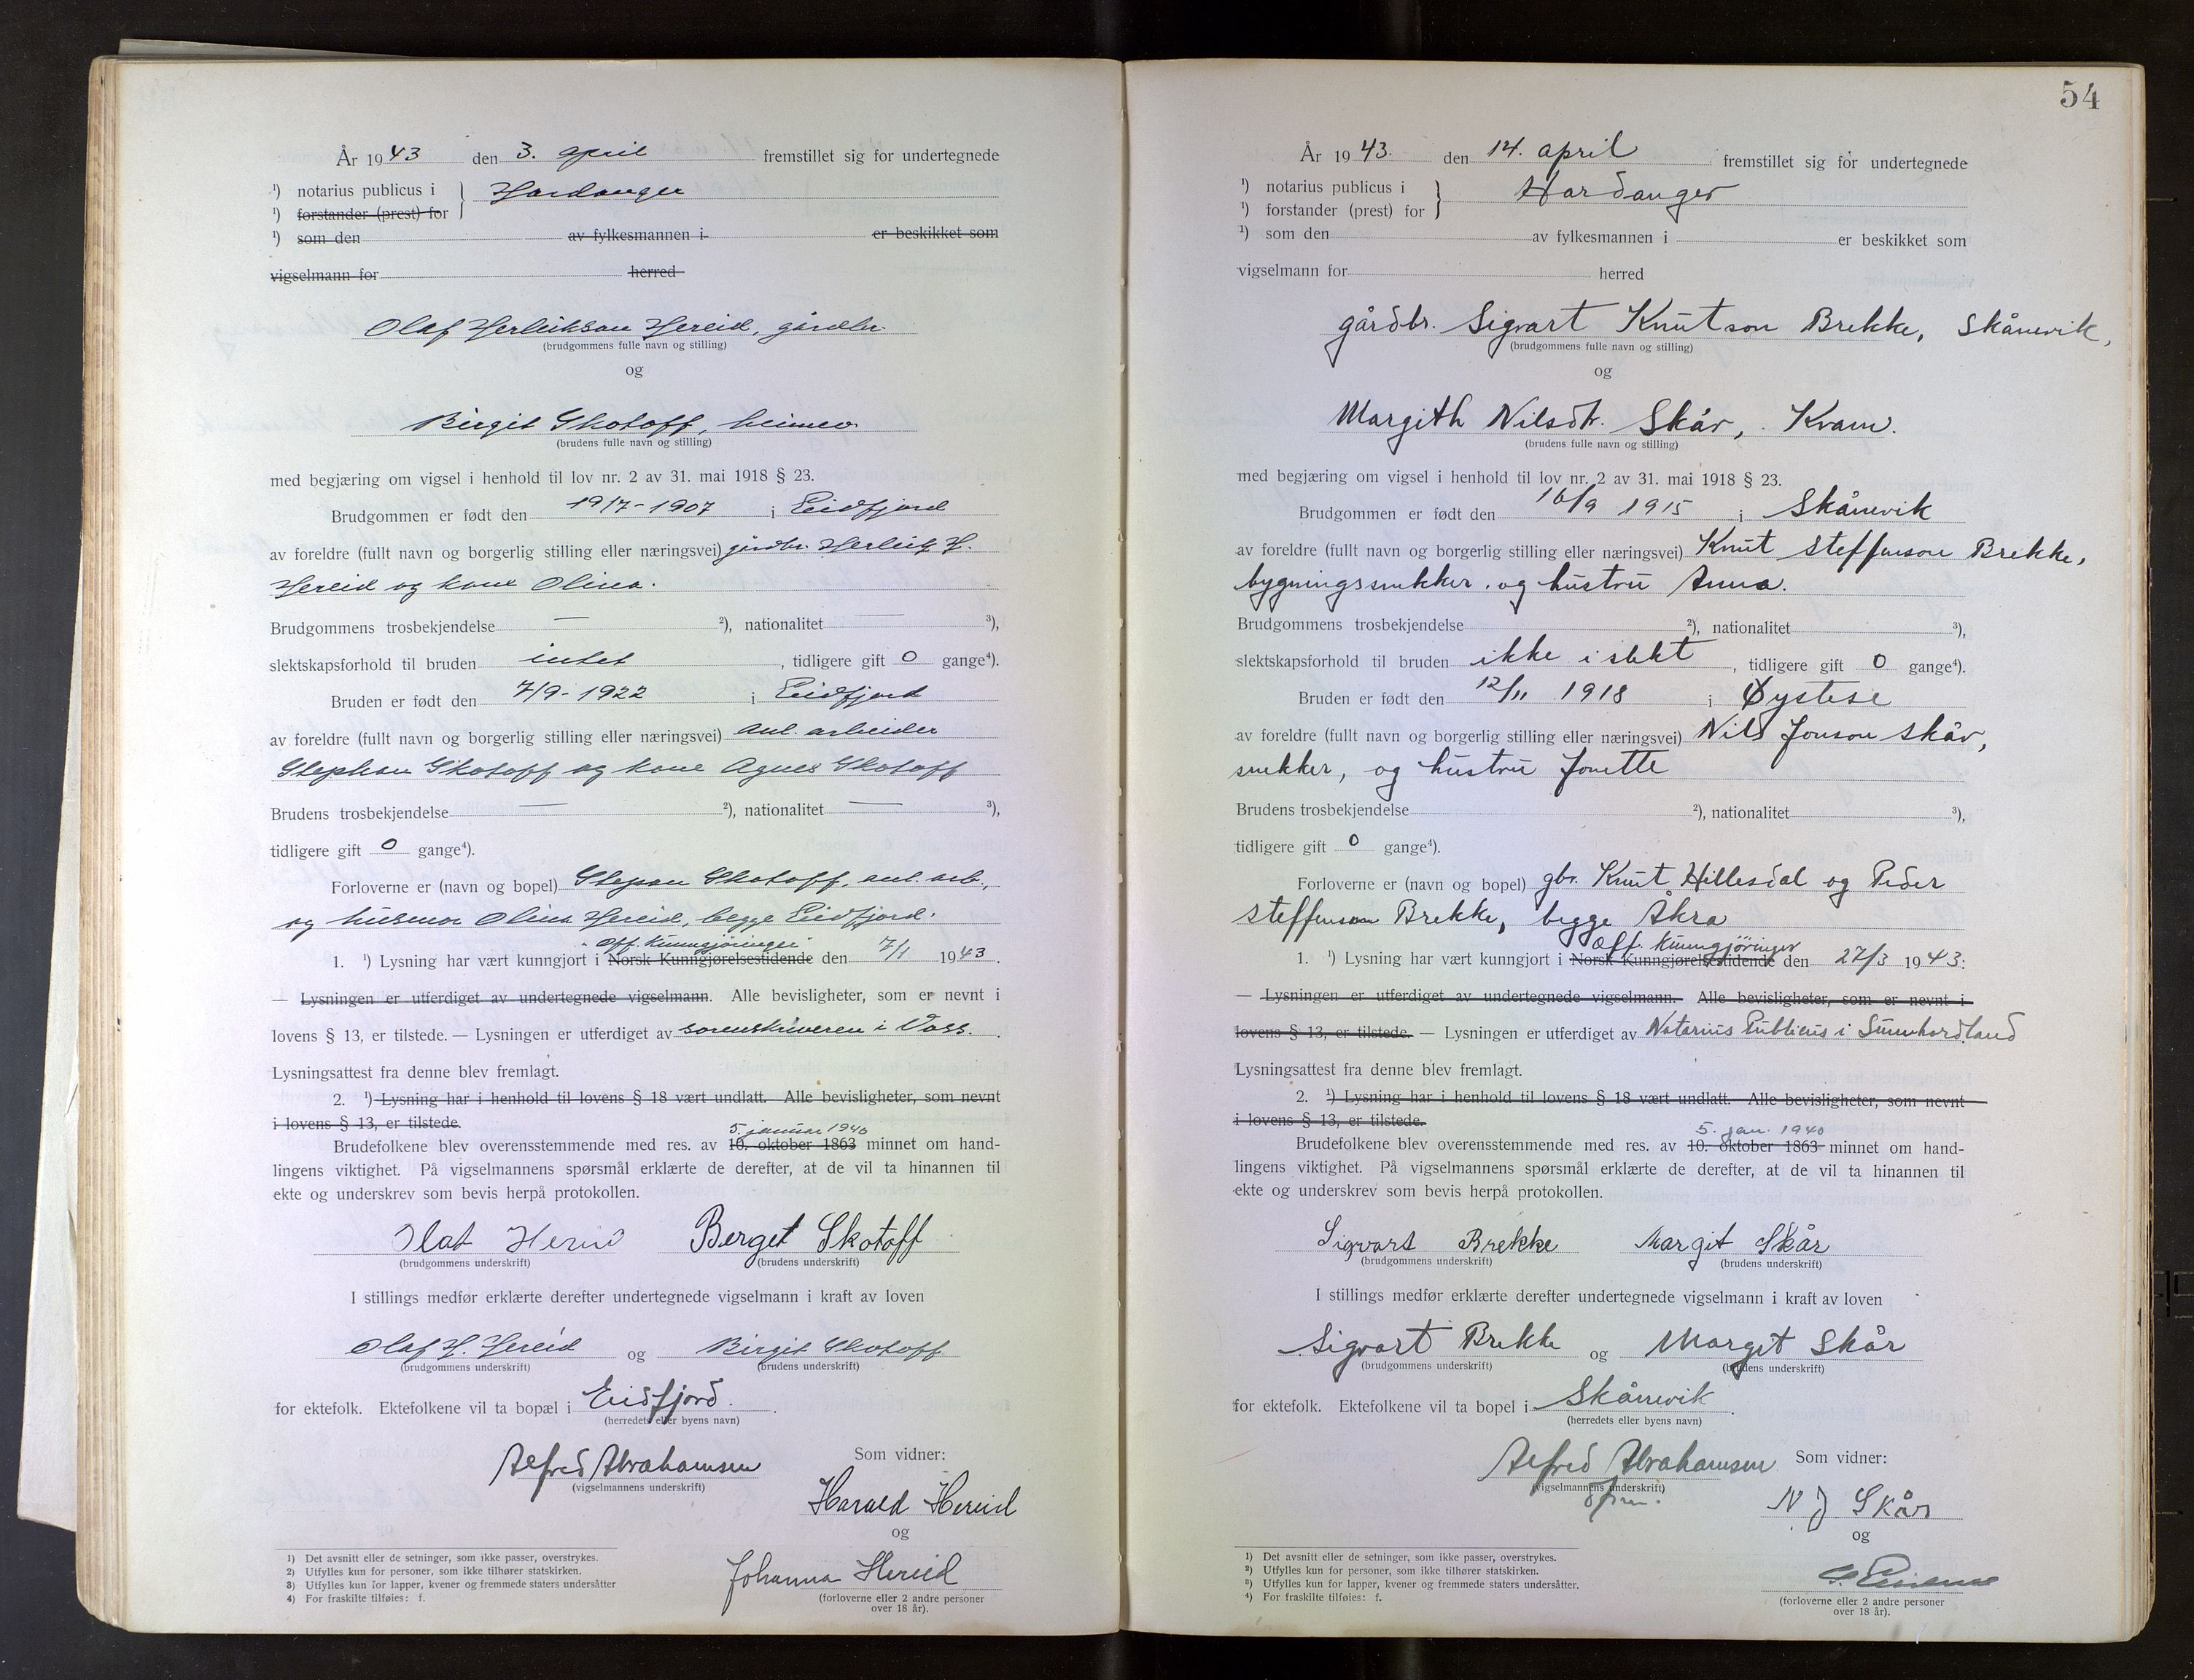 År 1943 den 3. april fremstillet sig for undertegnede
¹) notarius publicus i } Hardanger
¹) forstander (prest) for
¹) som den av fylkesmannen i er beskikket som
vigselmann for herred
Olaf Herleikson Hereid, gårdbr.
(brudgommens fulle navn og stilling)
og
Birgit Skotoff, heimev.
(brudens fulle navn og stilling)
med begjæring om vigsel i henhold til lov nr. 2 av 31. mai 1918 § 23.
Brudgommen er født den 19/7-1907 i Eidfjord
av foreldre (fullt navn og borgerlig stilling eller næringsvei) gårdbr. Herleik H.
Hereid og kone Olina.
Brudgommens trosbekjendelse — ²), nationalitet — ³),
slektskapsforhold til bruden intet , tidligere gift 0 gange⁴).
Bruden er født den 7/9-1922 i Eidfjord
av foreldre (fullt navn og borgerlig stilling eller næringsvei) anl. arbeider
Stephan Skotoff og kone Agnes Skotoff
Brudens trosbekjendelse — ²), nationalitet — ³),
tidligere gift 0 gange⁴).
Forloverne er (navn og bopel) Stepan Skotoff, anl. arb.,
og husmor Olina Hereid, begge Eidfjord.
"Off. Kunngjøringer"
1. ¹) Lysning har vært kunngjort i Norsk Kunngjørelsestidende den 7/1 1943.
— Lysningen er utferdiget av undertegnede vigselmann. Alle bevisligheter, som er nevnt i
lovens § 13, er tilstede. — Lysningen er utferdiget av sorenskriveren i Voss.
Lysningsattest fra denne blev fremlagt.
2. ¹) Lysning har i henhold til lovens § 18 vært undlatt. Alle bevisligheter, som nevnt
i lovens § 13, er tilstede.
5. januar 1940
Brudefolkene blev overensstemmende med res. av 10. oktober 1863 minnet om hand-
lingens viktighet. På vigselmannens spørsmål erklærte de derefter, at de vil ta hinannen til
ekte og underskrev som bevis herpå protokollen.
Olaf Hereid Berget Skotoff
(brudgommens underskrift) (brudens underskrift)
I stillings medfør erklærte derefter undertegnede vigselmann i kraft av loven
Olaf H. Hereid og Birgit Skotoff
(brudgommens underskrift) (brudens underskrift)
for ektefolk. Ektefolkene vil ta bopæl i Eidfjord.
(herredets eller byens navn)
Alfred Abrahamsen Som vidner:
(vigselmannens underskrift)
Harald Hereid
og
Johanna Hereid
(forloverne eller 2 andre personer
over 18 år).
1) Det avsnitt eller de setninger, som ikke passer, overstrykes.
2) Utfylles kun for personer, som ikke tilhører statskirken.
3) Utfylles kun for lapper, kvener og fremmede staters undersåtter
4) For fraskilte tilføies: f.
54
År 1943. den 14. april fremstillet sig for undertegnede
¹) notarius publicus i } Hardanger
¹) forstander (prest) for
¹) som den av fylkesmannen i er beskikket som
vigselmann for herred
gårdbr. Sigvart Knutson Brekke, Skånevik,
(brudgommens fulle navn og stilling)
og
Margith Nilsdtr. Skår, Kvam.
(brudens fulle navn og stilling)
med begjæring om vigsel i henhold til lov nr. 2 av 31. mai 1918 § 23.
Brudgommen er født den 16/9 1915 i Skånevik
av foreldre (fullt navn og borgerlig stilling eller næringsvei) Knut Steffenson Brekke,
bygningssnekker. og hustru Anna.
Brudgommens trosbekjendelse ²), nationalitet ³),
slektskapsforhold til bruden ikke i slekt , tidligere gift 0 gange⁴).
Bruden er født den 12/11 1918 i Øystese
av foreldre (fullt navn og borgerlig stilling eller næringsvei) Nils Jonson Skår,
snekker, og hustru Jonette
Brudens trosbekjendelse ²), nationalitet ³),
tidligere gift 0 gange⁴).
Forloverne er (navn og bopel) gbr. Knut Hillesdal og Peder
Steffenson Brekke, begge Åkra
Off. Kunngjøringer
1. ¹) Lysning har vært kunngjort i Norsk Kunngjørelsestidende den 27/3 1943:
— Lysningen er utferdiget av undertegnede vigselmann. Alle bevisligheter, som er nevnt i
lovens § 13, er tilstede. — Lysningen er utferdiget av Notarius Publicus i Sunnhordland
Lysningsattest fra denne blev fremlagt.
2. ¹) Lysning har i henhold til lovens § 18 vært undlatt. Alle bevisligheter, som nevnt
i lovens § 13, er tilstede.
5. jan. 1940
Brudefolkene blev overensstemmende med res. av 10. oktober 1863 minnet om hand-
lingens viktighet. På vigselmannens spørsmål erklærte de derefter, at de vil ta hinannen til
ekte og underskrev som bevis herpå protokollen.
Sigvart Brekke Margit Skår
(brudgommens underskrift) (brudens underskrift)
I stillings medfør erklærte derefter undertegnede vigselmann i kraft av loven
Sigvart Brekke og Margit Skår
(brudgommens underskrift) (brudens underskrift)
for ektefolk. Ektefolkene vil ta bopel i Skånevik.
(herredets eller byens navn)
Alfred Abrahamsen Som vidner:
(vigselmannens underskrift)
N J Skår
og
(forloverne eller 2 andre personer
over 18 år).
1) Det avsnitt eller de setninger, som ikke passer, overstrykes.
2) Utfylles kun for personer, som ikke tilhører statskirken.
3) Utfylles kun for lapper, kvener og fremmede staters undersåtter.
4) For fraskilte tilføies: f.